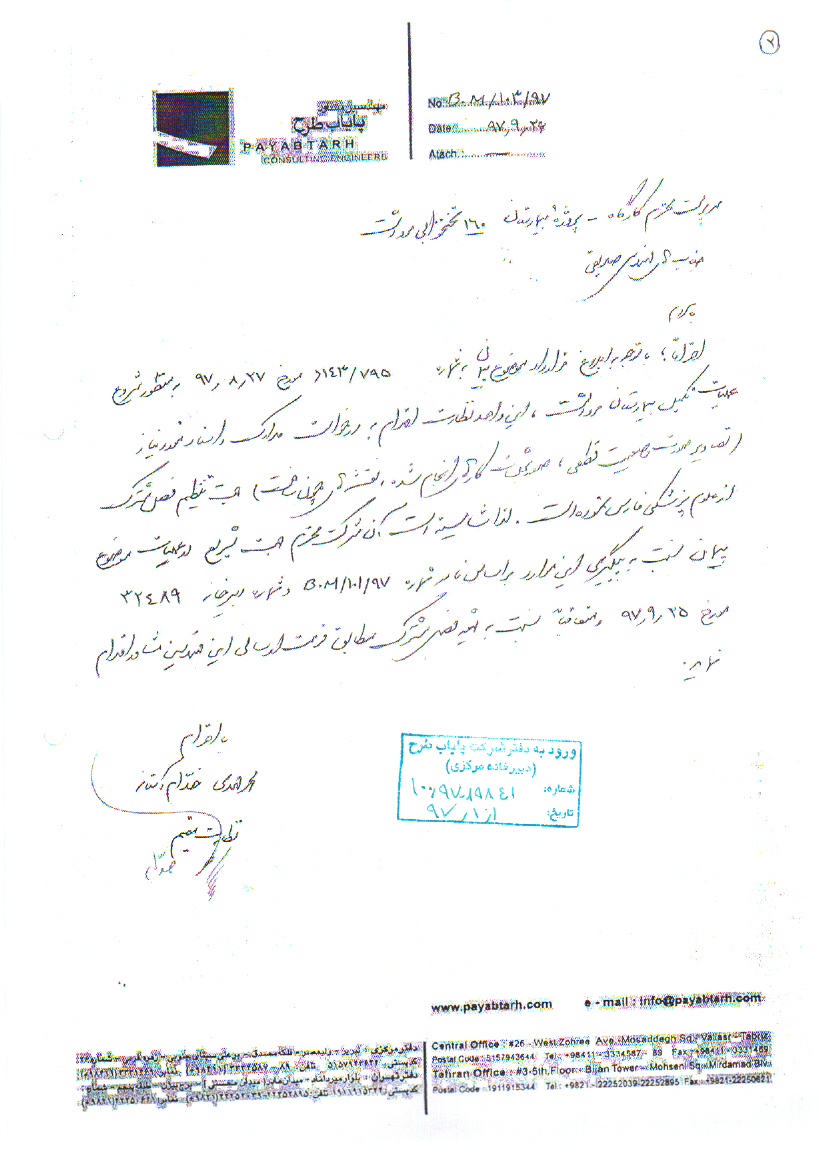 ۲
مهندسین مشاور
پایاب طرح
PAYABTARH
CONSULTING ENGINEERS
No: B.M/۱۰۳/۹۷
Date: ۹۷,۹,۲۶
Atach:
مدیریت محترم کارگاه - پروژه بیمارستان ۱۶۰ تختخوابی مرودشت
جناب آقای مهندس صدیقی
با سلام
احتراماً، با توجه به ابلاغ قرارداد موضوع پیمان به شماره ۱۴۳/۷۹۵/د مورخ ۹۷,۸,۲۷ به منظور شروع
عملیات تکمیل بیمارستان مرودشت، این واحد نظارت اقدام به درخواست مدارک و اسناد مورد نیاز
(تصاویر صورت وضعیت قطعی، صورتجلسات کارهای انجام شده، نقشه های چون ساخت) جهت تنظیم فصل مشترک
از علوم پزشکی فارس نموده است. لذا شایسته است آن شرکت محترم جهت تسریع در عملیات موضوع
پیمان نسبت به پیگیری این موارد بر اساس نامه شماره B.M/۱۰۱/۹۷ و شماره دبیرخانه ۳۲۴۸۹
مورخ ۹۷,۹,۲۵ و متعاقباً نسبت به تهیه فصل مشترک مطابق فرمت ارسالی این مهندسین مشاور اقدام
نمایید.
با احترام
محمدمهدی خدام
نظارت مقیم
ورود به دفتر شرکت پایاب طرح
(دبیرخانه مرکزی)
شماره: ۱۰۰,۹۷,۱۹۸۴۱
تاریخ: ۹۷,۱۰,۱
www.payabtarh.com e - mail : info@payabtarh.com
Central Office : #26 - West Zohree Ave.-Mosaddegh Sq.- Valiasr - Tabriz
Postal Code : 5157943644 Tel : +98411- 3334587 - 89 Fax : +98411- 3331489
Tehran Office : #3-5th.Floor - Bijan Tower - Mohseni Sq.-Mirdamad Blv.
Postal Code : 1911915344 Tel : +9821 - 22252039-22252895 Fax : +9821-22250621